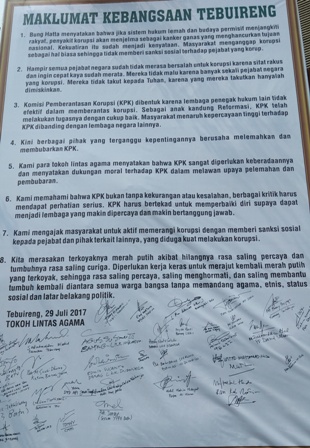 MAKLUMAT KEBANGSAAN TEBUIRENG
1. Bung Hatta menyatakan bahwa jika sistem hukum lemah dan budaya permisif menjangkiti
rakyat, penyakit korupsi akan menjelma sebagai kanker ganas yang menghancurkan tujuan
nasional. Kekuatiran itu sudah menjadi kenyataan. Masyarakat menganggap korupsi
sebagai hal biasa sehingga tidak memberi sanksi sosial terhadap pejabat yang korup.
2. Hampir semua pejabat negara sudah tidak merasa bersalah untuk korupsi karena sifat rakus
dan ingin cepat kaya sudah merata. Mereka tidak malu karena banyak sekali pejabat negara
yang korupsi. Mereka tidak takut kepada Tuhan, karena yang mereka takutkan hanyalah
dimiskinkan.
3. Komisi Pemberantasan Korupsi (KPK) dibentuk karena lembaga penegak hukum lain tidak
efektif dalam memberantas korupsi. Sebagai anak kandung Reformasi, KPK telah
melakukan tugasnya dengan cukup baik. Masyarakat menaruh kepercayaan tinggi terhadap
KPK dibanding dengan lembaga negara lainnya.
4. Kini berbagai pihak yang terganggu kepentingannya berusaha melemahkan dan
membubarkan KPK.
5. Kami para tokoh lintas agama menyatakan bahwa KPK sangat diperlukan keberadaannya
dan menyatakan dukungan moral terhadap KPK dalam melawan upaya pelemahan dan
pembubaran.
6. Kami memahami bahwa KPK bukan tanpa kekurangan atau kesalahan, berbagai kritik harus
mendapat perhatian serius. KPK harus bertekad untuk memperbaiki diri supaya dapat
menjadi lembaga yang makin dipercaya dan makin bertanggung jawab.
7. Kami mengajak masyarakat untuk aktif memerangi korupsi dengan memberi sanksi sosial
kepada pejabat dan pihak terkait lainnya, yang diduga kuat melakukan korupsi.
8. Kita merasakan terkoyaknya merah putih akibat hilangnya rasa saling percaya dan
tumbuhnya rasa saling curiga. Diperlukan kerja keras untuk merajut kembali merah putih
yang terkoyak, sehingga rasa saling percaya, saling menghormati, dan saling membantu
tumbuh kembali diantara semua warga bangsa tanpa memandang agama, etnis, status
sosial dan latar belakang politik.
Tebuireng, 29 Juli 2017
TOKOH LINTAS AGAMA